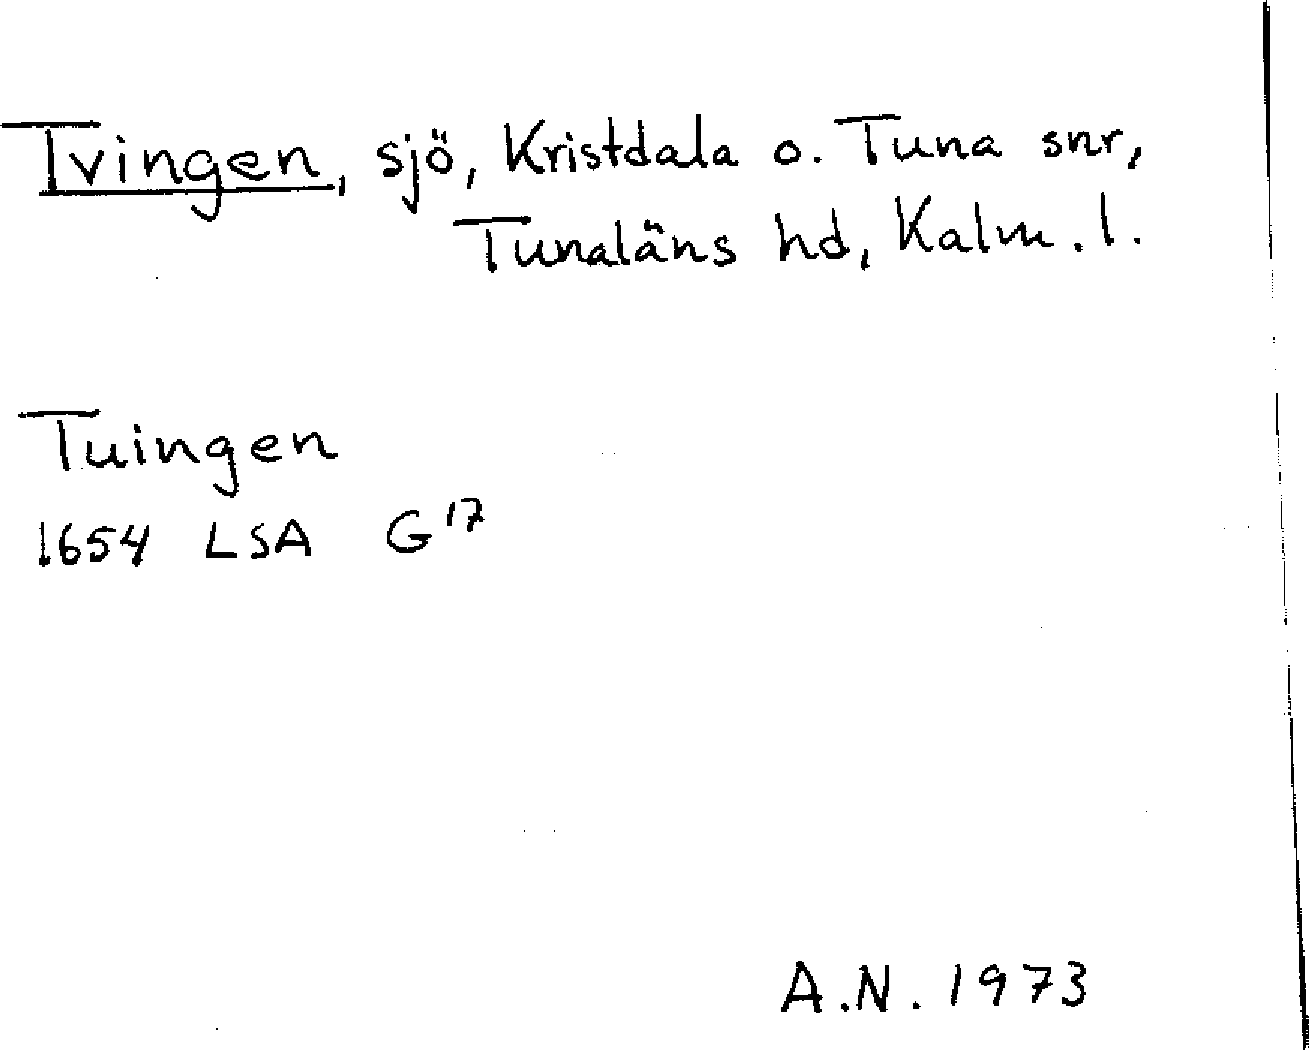 Tvingen, sjö, Kristdala o. Tuna snr,
Tunaläns hd, Kalm. l.
Tuingen
1654 LSA G17
A.N. 1973